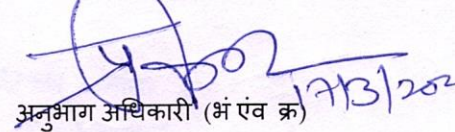 17/3/202
अनुभाग अधिकारी (भं एंव क्र)